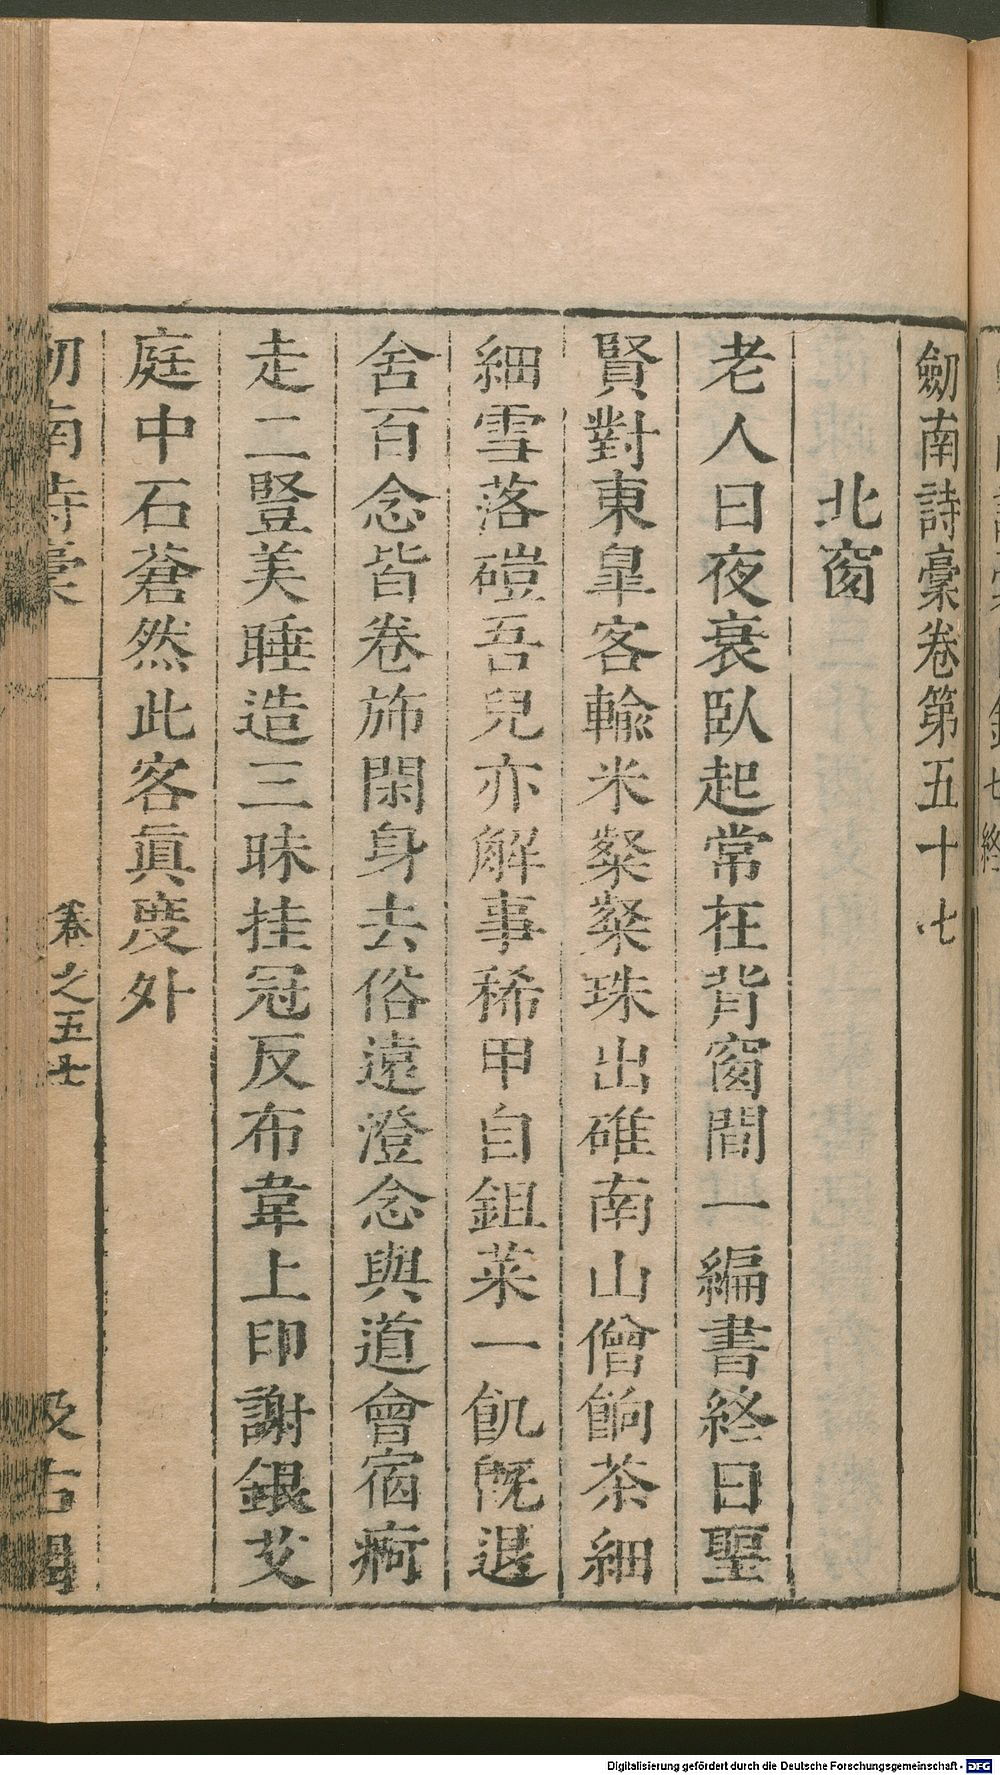 劒南詩稾卷第五十七
北窗
老人日夜衰臥起常在背窗間一編書終日聖
賢對東皐客輸米粲粲珠出碓南山僧餉茶細
細雪落磑吾兒亦解事稀甲自鉏菜一飢旣退
舍百念皆卷斾閑身去俗遠澄念與道會宿痾
走二豎美睡造三昧挂冠反布韋上印謝銀艾
庭中石蒼然此客眞度外
南詩稾
卷之五七
及古閣
Digitalisierung gefördert durch die Deutsche Forschungsgemeinschaft - DFG